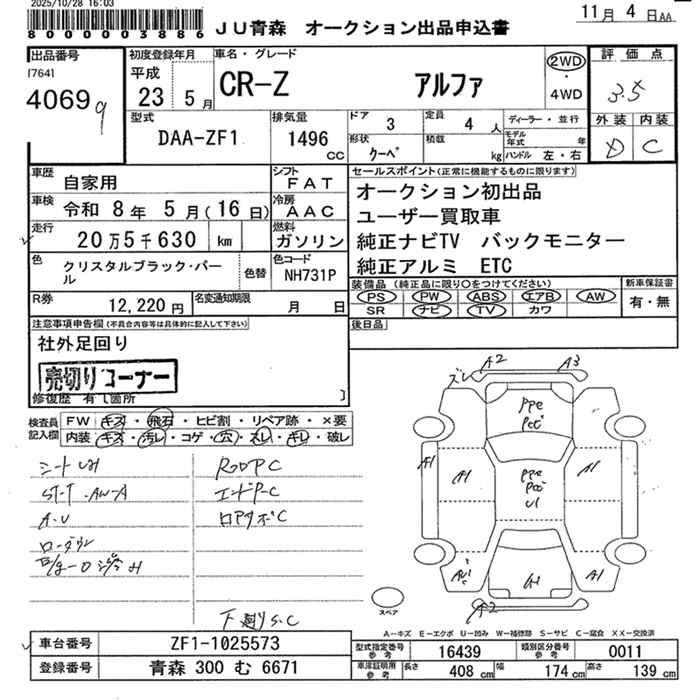 2025/10/28 16:03
8000003886
JU青森 オークション出品申込書
11月 4日AA
出品番号
[764]
4069
初度登録年月
平成
23 5月
車名・グレード
CR-Z アルファ
2WD
・
4WD
評価点
3.5
外装 内装
D C
型式
DAA-ZF1
排気量
1496
CC
ドア 3
定員 4人
形状 クーペ
積載 kg
ディーラー・並行
モデル年式 年
ハンドル 左・右
車歴 自家用
シフト FAT
車検 令和 8年 5月(16日)
冷房 AAC
走行 20万5千630 km
燃料 ガソリン
色 クリスタルブラック・パール
色替
色コード NH731P
R券 12,220円
名変通知期限 月 日
セールスポイント(正常に機能するものに限ります)
オークション初出品
ユーザー買取車
純正ナビTV バックモニター
純正アルミ ETC
装備品 (純正品に限り○をつけてください)
PS PW ABS エアB AW
SR ナビ TV カワ
新車保証書
有・無
後日品
注意事項申告欄(不具合内容等は具体的に記入して下さい)
社外足回り
売切りコーナー
修復歴 有 [箇所 ]
検査員記入欄
FW キズ・飛石・ヒビ割・リペア跡・×要
内装 キズ・汚レ・コゲ・穴・スレ・キレ・破レ
ST-T .AW-A
A.U
下廻りS.C
ズレ A2 A3
A1 A1 A1 A1
A1
A2
スペア
A－キズ E－エクボ U－凹み W－補修跡 S－サビ C－腐食 XX－交換済
車台番号 ZF1-1025573
登録番号 青森 300 む 6671
型式指定番号 参考 16439
類別区分番号 参考 0011
車庫証明用 参考 長さ 408 cm 幅 174 cm 高さ 139 cm